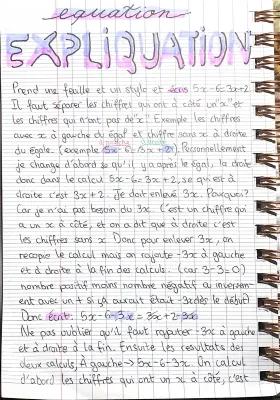 equation
EXPLIQUATION
Prend une feuille et un stylo et écris 5x-6=3x+2
Il faut séparer les chiffres qui ont à côté un "x" et
les chiffres qui n'ont pas de "x". Exemple les chiffres
avec x à gauche du égal et chiffre sans x à droite
du égale. (exemple 5x-6=3x+2) Personnellement
je change d'abord se qu'il y a après le égal, la droite
donc dans le calcul 5x-6=3x+2, se qui est à
droite c'est 3x+2. Je doit enlevé 3x. Pourquoi?
Car je n'ai pas besoin du 3x. C'est un chiffre qui
a un x à côté, et on a dit que à droite c'est
les chiffres sans x. Donc pour enlever 3x, on
recopie le calcul mais on rajoute -3x à gauche
et à droite à la fin des calculs. (car 3-3=0)
nombre positif moins nombre négatif (a inversem-
ent avec un + si y aurait était -3x dès le début)
Donc écrit: 5x-6-3x=3x+2-3x
Ne pas oublier qu'il faut rajouter -3x à gauche
et à droite à la fin. Ensuite les resultats des
deux calculs, A gauche → 5x-6-3x. On calcul
d'abord les chiffres qui ont un x à côté, c'est